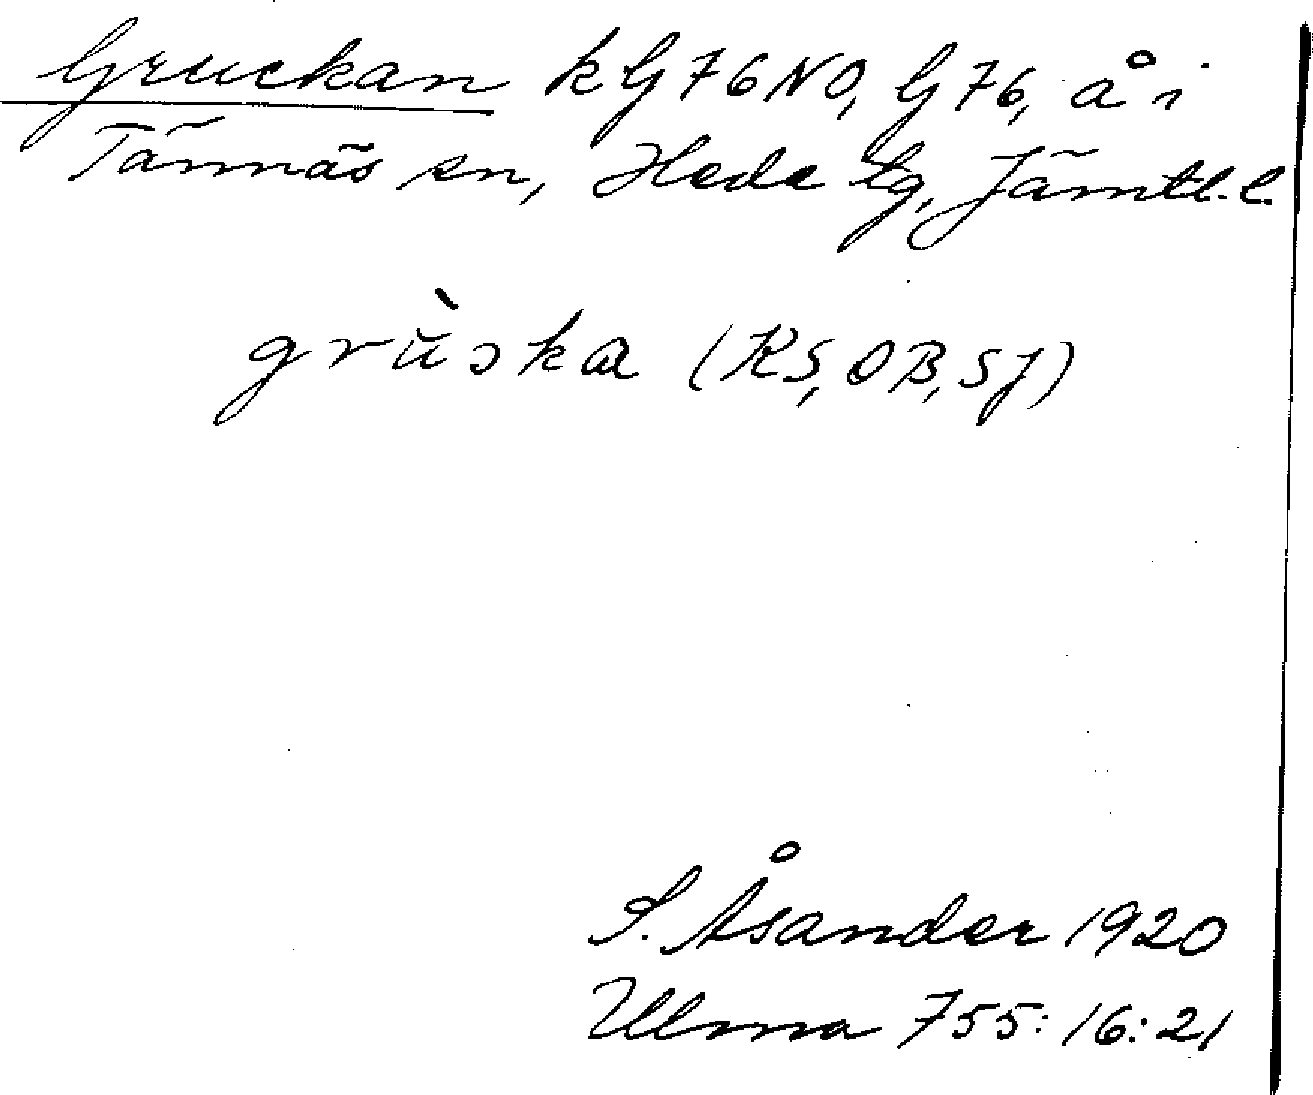 Gruckan kG76NO, G76, å i
Tännäs sn, Hede tg, Jämtl.l.
grùska (KS, OB, SJ)
S. Åsander 1920
Ulma 755:16:21